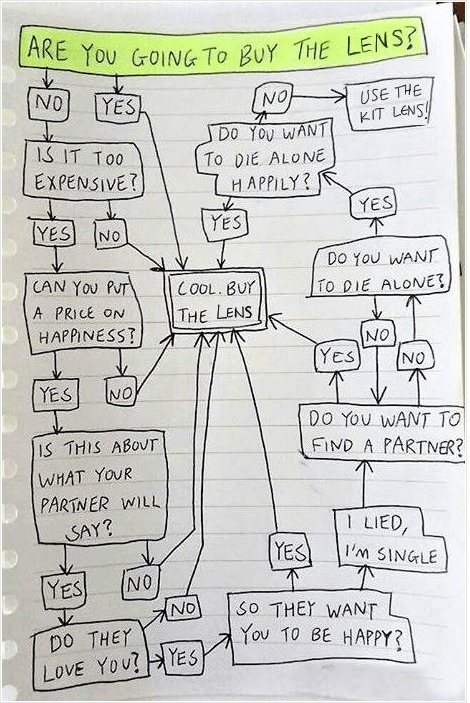 ARE YOU GOING TO BUY THE LENS?
NO
YES
NO
USE THE
KIT LENS!
DO YOU WANT
TO DIE ALONE
HAPPILY?
IS IT TOO
EXPENSIVE?
YES
NO
YES
YES
DO YOU WANT
TO DIE ALONE?
CAN YOU PUT
A PRICE ON
HAPPINESS?
COOL. BUY
THE LENS
NO
YES
NO
YES
NO
DO YOU WANT TO
FIND A PARTNER?
IS THIS ABOUT
WHAT YOUR
PARTNER WILL
SAY?
I LIED,
I'M SINGLE
YES
NO
YES
NO
SO THEY WANT
YOU TO BE HAPPY?
DO THEY
LOVE YOU?
YES